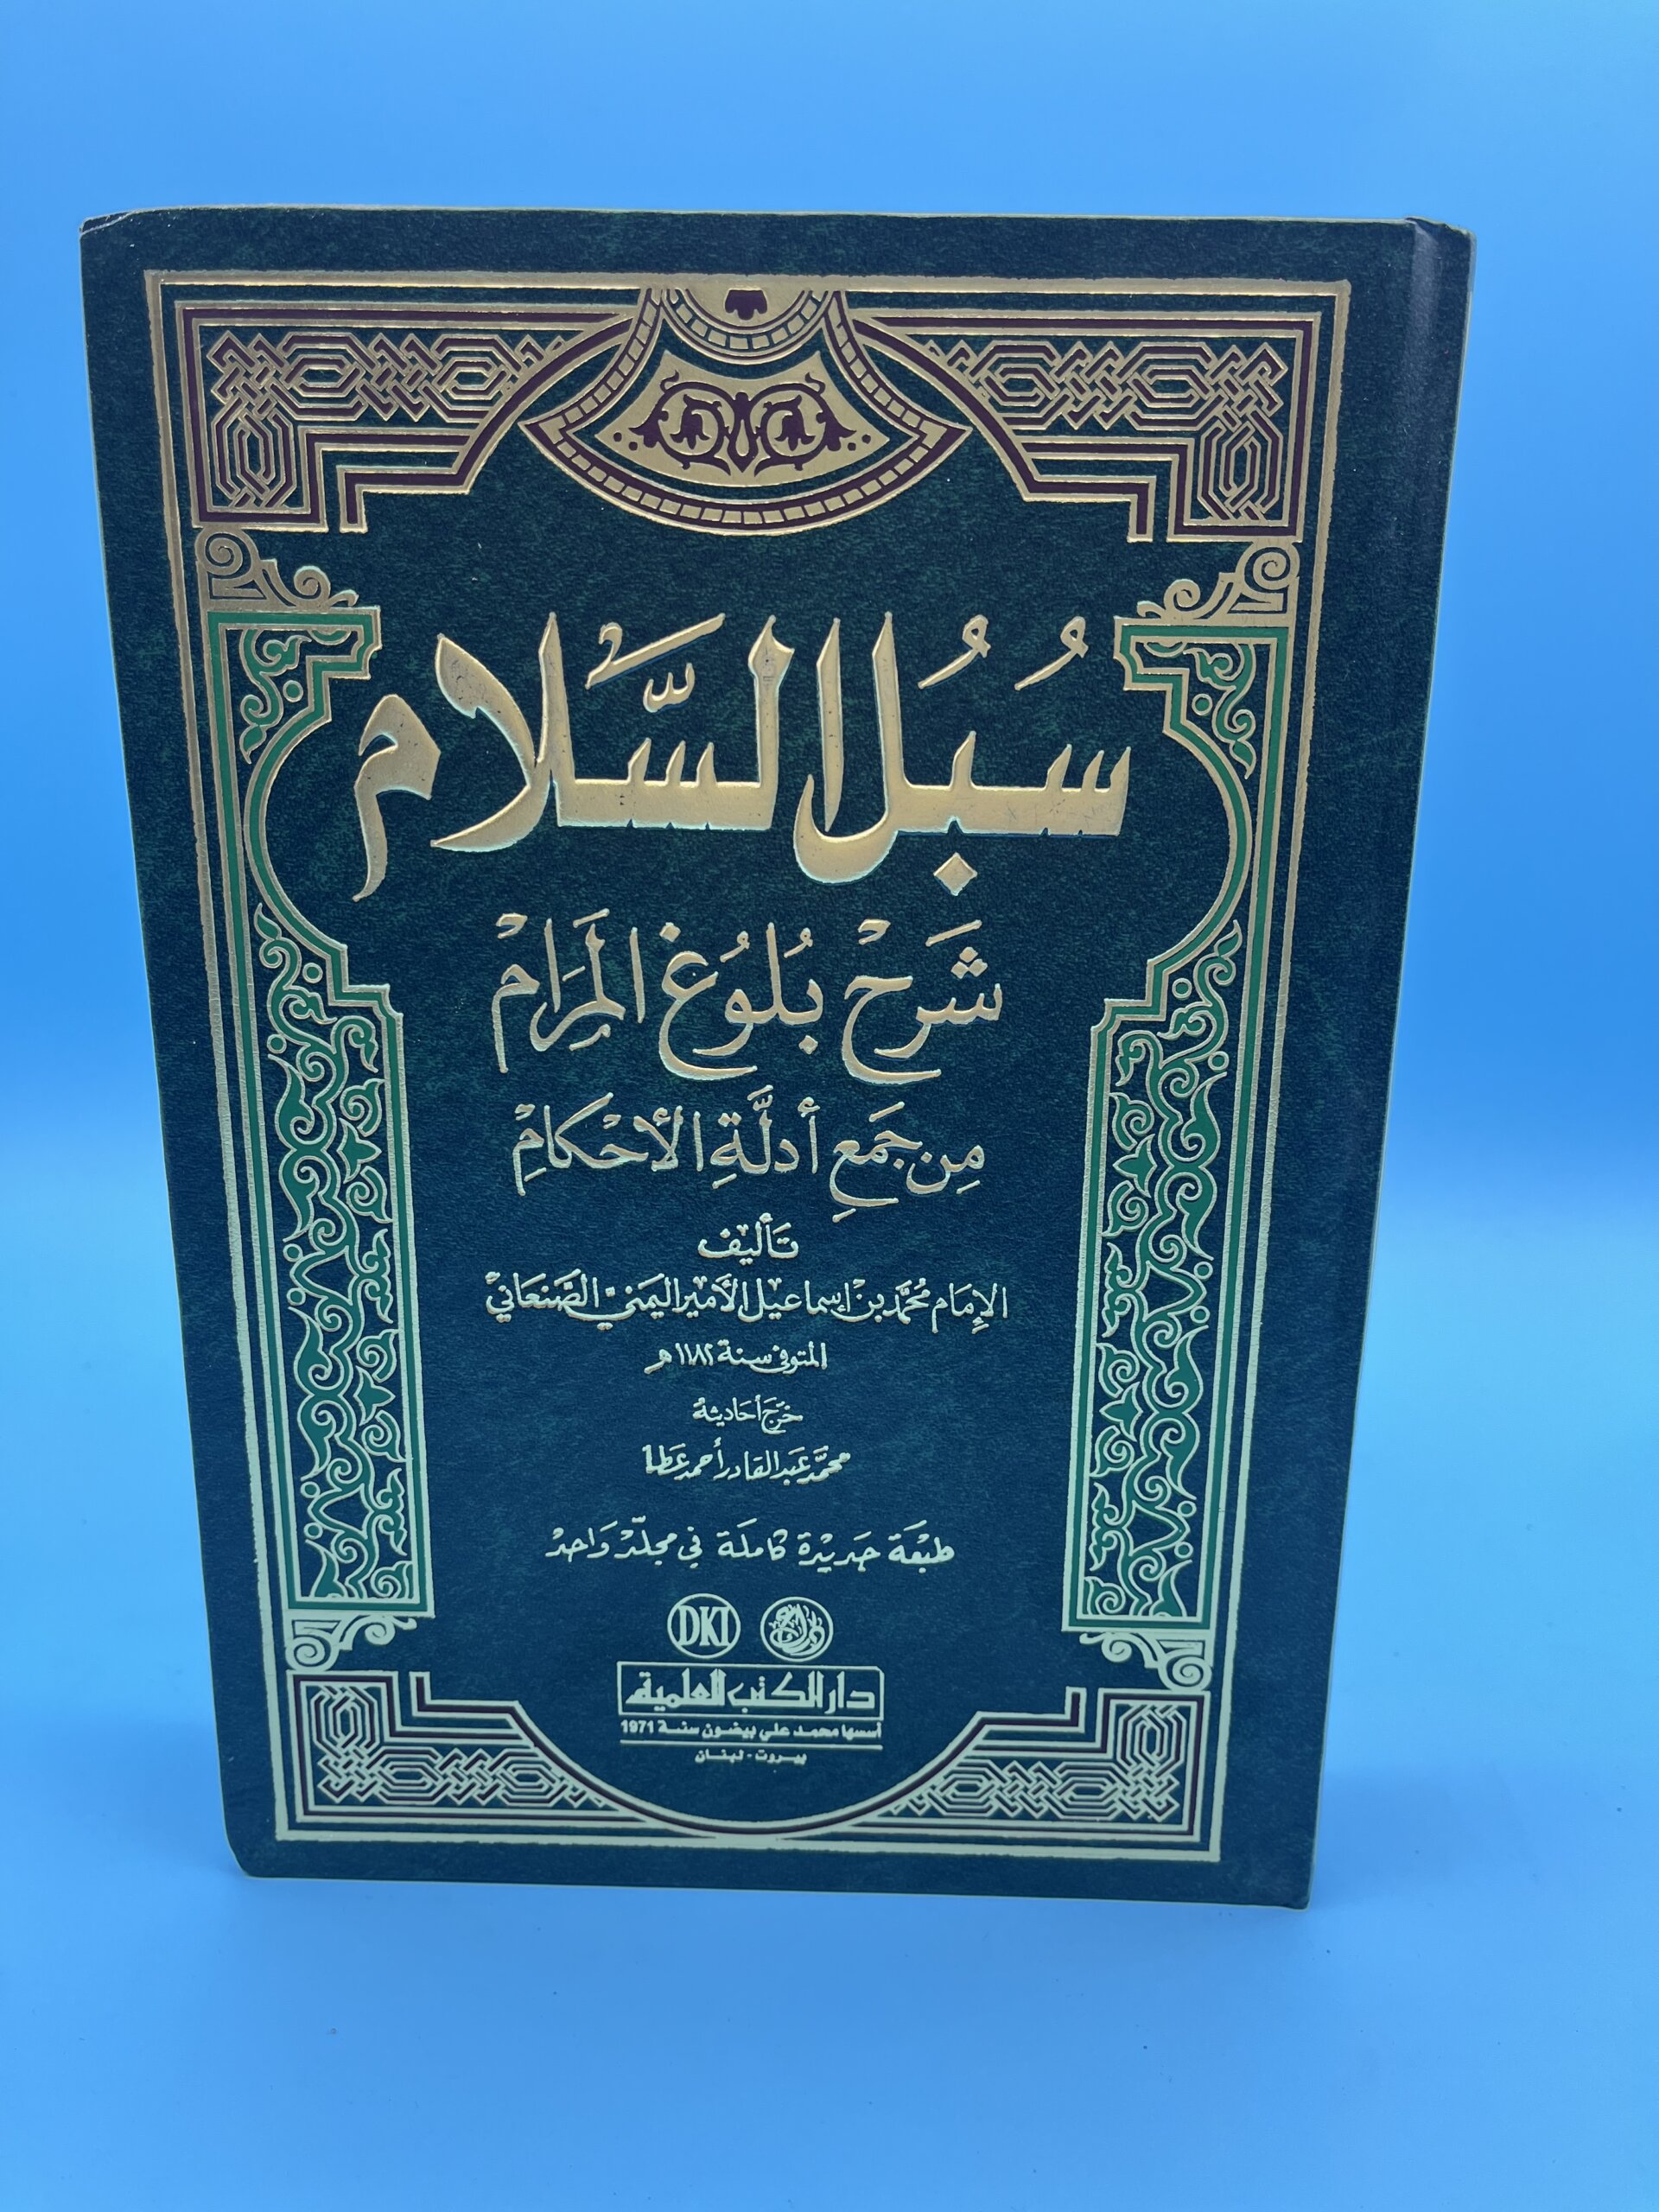 سُبُل السَّلام
شَرْح بُلُوغ المَرَامْ
مِن جَمعِ أدلَّةِ الأحْكامِ
تَأليف
الإمَام مُحمَّد بن إسماعيل الأمير اليَمنيّ الصَّنعَانيْ
المتوفى سنة ١١٨٢ هـ
خرَّج أحاديثهُ
محمَّد عَبد القادر أحمد عَطا
طبْعَة جَديْدة كاملَة في مجلّدْ وَاحدْ
DKI
دار الكتب العلمية
أسسها محمد علي بيضون سنة 1971
بيروت - لبنان